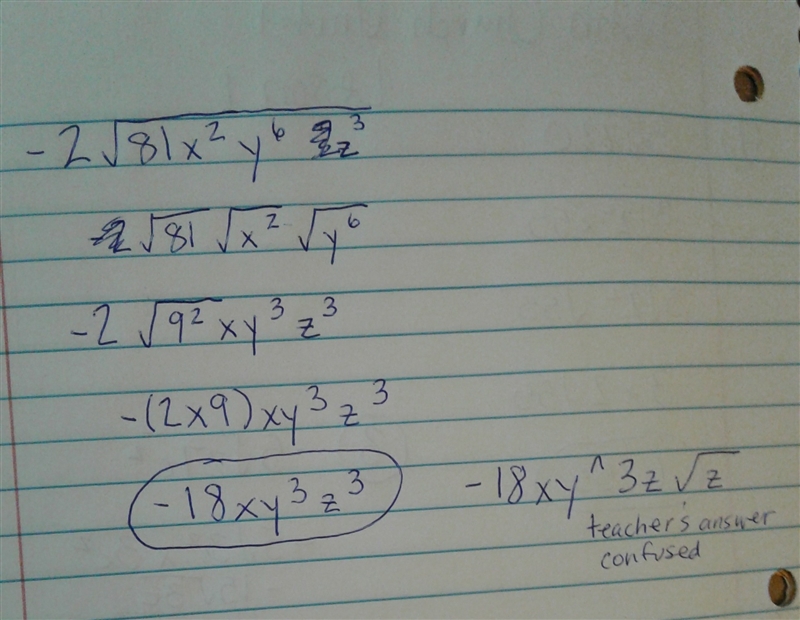 -2√81x² y⁶ z³
-2 √81 √x² √y⁶
-2 √9² xy³ z³
-(2x9) xy³ z³
-18xy³z³
-18xy^3z√z
teacher's answer
confused